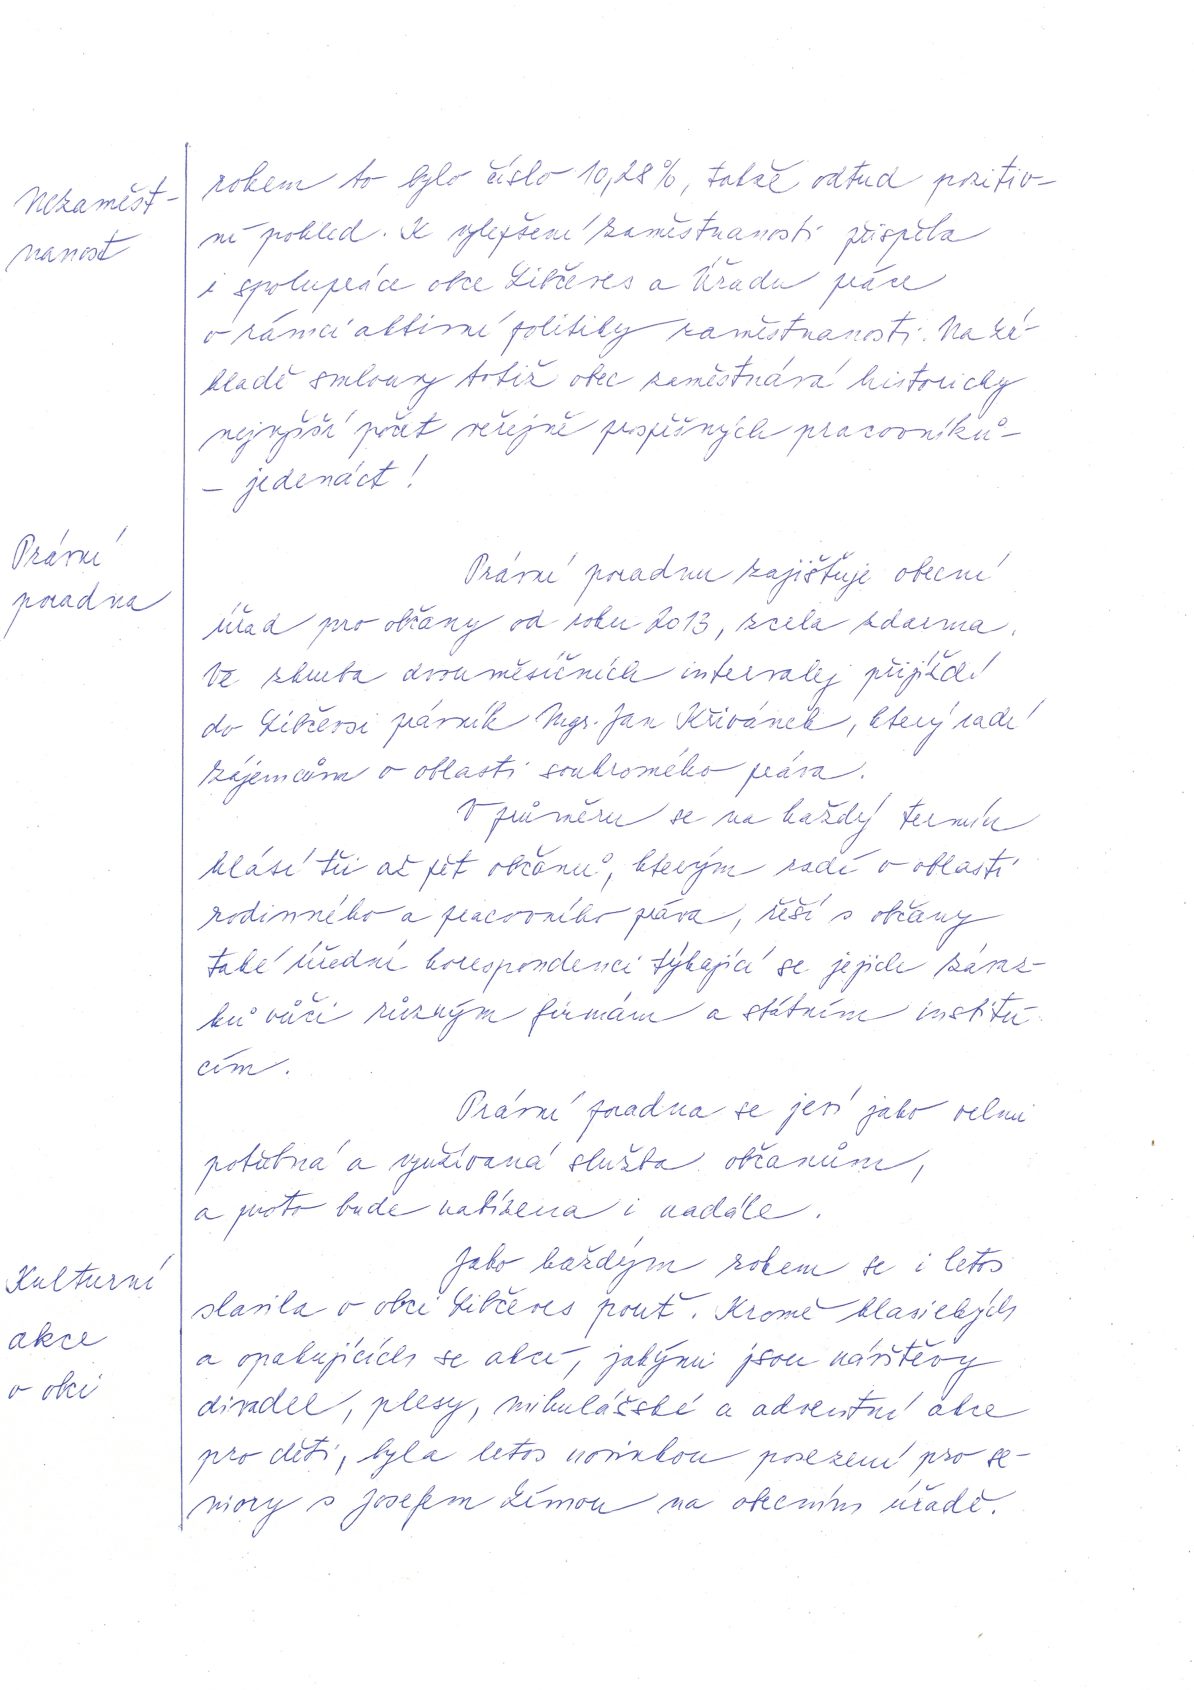 Nezaměst-
nanost
rokem to bylo číslo 10,28%, takže odtud pozitiv-
ní pohled. K vylepšení zaměstnanosti přispěla
i spolupráce obce Libčeves a Úřadu práce
v rámci aktivní politiky zaměstnanosti. Na zá-
kladě smlouvy totiž obec zaměstnává historicky
nejvyšší počet veřejně prospěšných pracovníků –
– jedenáct!
Právní
poradna
Právní poradnu zajišťuje obecní
úřad pro občany od roku 2013, zcela zdarma.
Ve zhruba dvouměsíčních intervalej přijíždí
do Libčevsi právník Mgr. Jan Křivánek, který radí
zájemcům v oblasti soukromého práva.
V průměru se na každý termín
hlásí tři až pět občanů, kterým radí v oblasti
rodinného a pracovního práva, řeší s občany
také úřední korespondenci týkající se jejich závaz-
ků vůči různým firmám a státním institu-
cím.
Právní poradna se jeví jako velmi
potřebná a využívaná služba občanům,
a proto bude nabízena i nadále.
Kulturní
akce
v obci
Jako každým rokem se i letos
slavila v obci Libčeves pouť. Kromě klasických
a opakujících se akcí, jakými jsou návštěvy
divadel, plesy, mikulášské a adventní akce
pro děti, byla letos novinkou posezení pro se-
niory s Josefem Zímou na obecním úřadě.